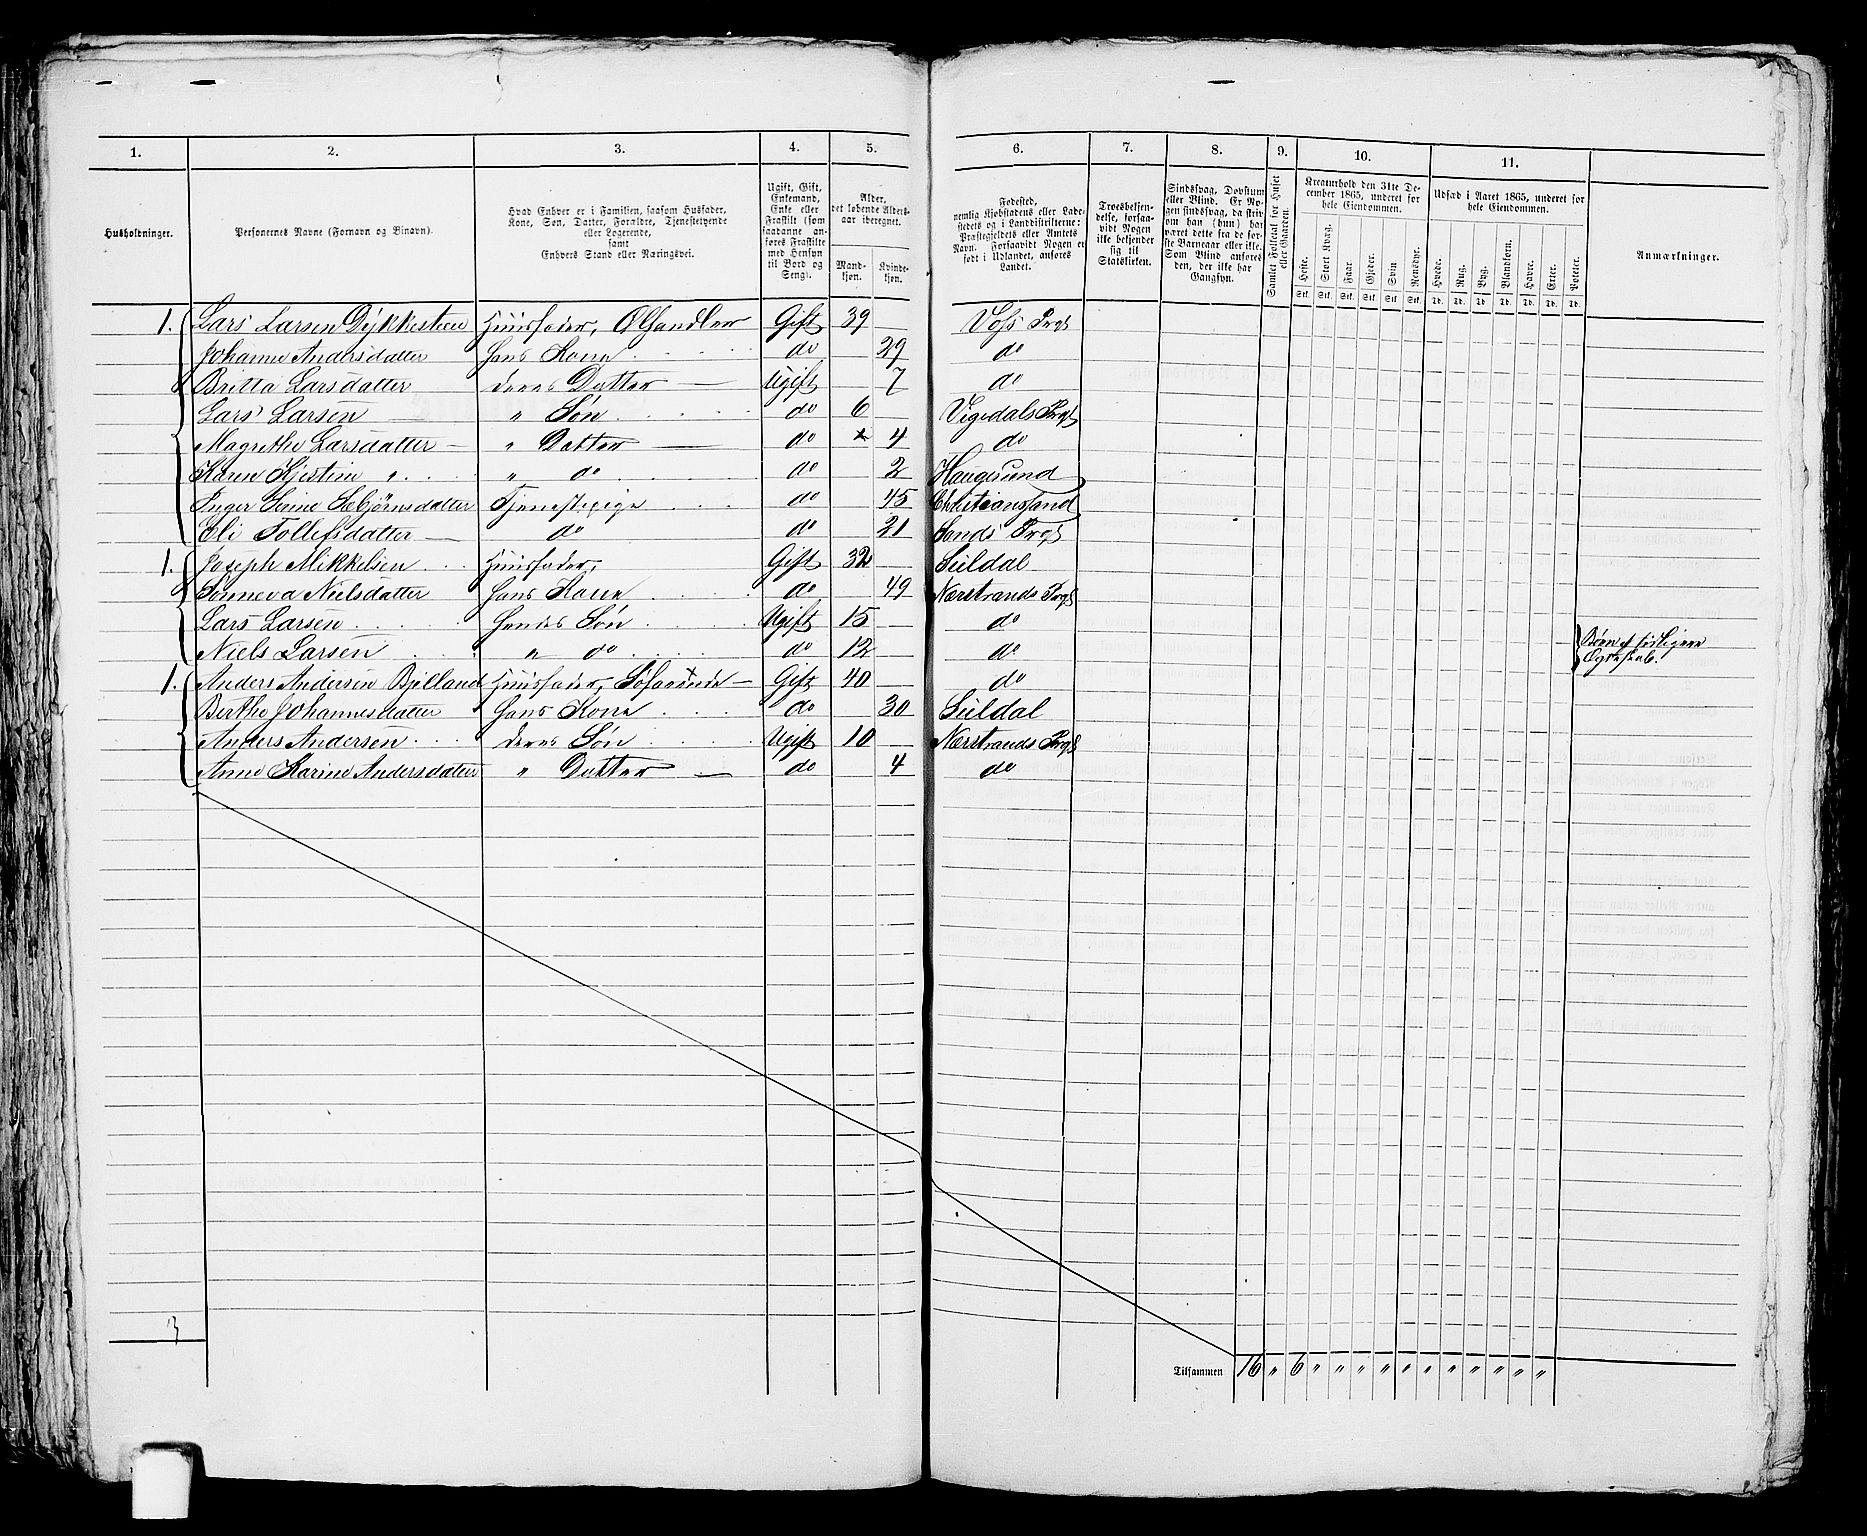 1. 2. 3. 4. 5. 6. 7. 8. 9. 10. 11.
Husholdninger.
Personernes Navne (Fornavn og Binavn).
Hvad Enhver er i Familien, saasom Husfader, Kone, Søn, Datter, Forældre, Tjenestetyende eller Logerende, samt Enhvers Stand eller Næringsvei.
Ugift, Gift, Enkemand, Enke eller Fraskilt (som saadanne anføres Fraskilte med Hensyn til Bord og Seng).
Alder, det løbende Aldersaar iberegnet.
Mandkjøn. Kvindekjøn.
Fødested, nemlig Kjøbstadens eller Ladestedets og i Landdistrikterne: Præstegjeldets eller Amtets Navn. Forsaavidt Nogen er født i Udlandet, anføres Landet.
Troesbekjendelse, forsaavidt Nogen ikke bekjender sig til Statskirken.
Sindssvag, Døvstum eller Blind. Er Nogen sindssvag, da skrives om han (hun) har været dette fra de første Barneaar eller ikke. Som Blind anføres den, der ikke har Gangsyn.
Samlet Folketal for Huset eller Gaarden.
Kreaturhold den 31te December 1865, underet for hele Eiendommen.
Heste. Stort Kvæg. Faar. Gjeder. Svin. Rensdyr.
Stk. Stk. Stk. Stk. Stk. Stk.
Udsæd i Aaret 1865, underet for hele Eiendommen.
Hvede. Rug. Byg. Blandkorn. Havre. Erter. Poteter.
Td. Td. Td. Td. Td. Td. Td.
Anmærkninger.
1. Lars Larsen Dykkesteen Huusfader, Ølhandler Gift 39 Voss Prgj
Johanne Andersdatter hans Kone do 29 do
Britta Larsdatter deres Datter Ugift 7 do
Lars Larsen " Søn do 6 Vigedals Prgj
Magrethe Larsdatter " Datter do 4 do
Karen Kjestine " " do do 2 Haugesund
Inger Seine Tjenestepige do 45 Christiansand
Eli Tollefsdatter do do 21 Sands Prgj
1. Joseph Mikkelsen Huusfader, Gift 32 Suldal
Sønneva Nielsdatter hans Kone do 49 Nærstrands Prgj
Lars Larsen hendes Søn Ugift 15 do
Niels Larsen " do do 12 do Børn af forrigere Ægteskab.
1. Anders Andersen Bjelland Huusfader, Søfarende Gift 40 do
Berthe Johannesdatter hans Kone do 30 Suldal
Anders Andersen deres Søn Ugift 10 Nærstrands Prgj
Anne Karine Andersdatter " Datter do 4 do
3
Tilsammen 16 " 6 " " " " " " " " " " "